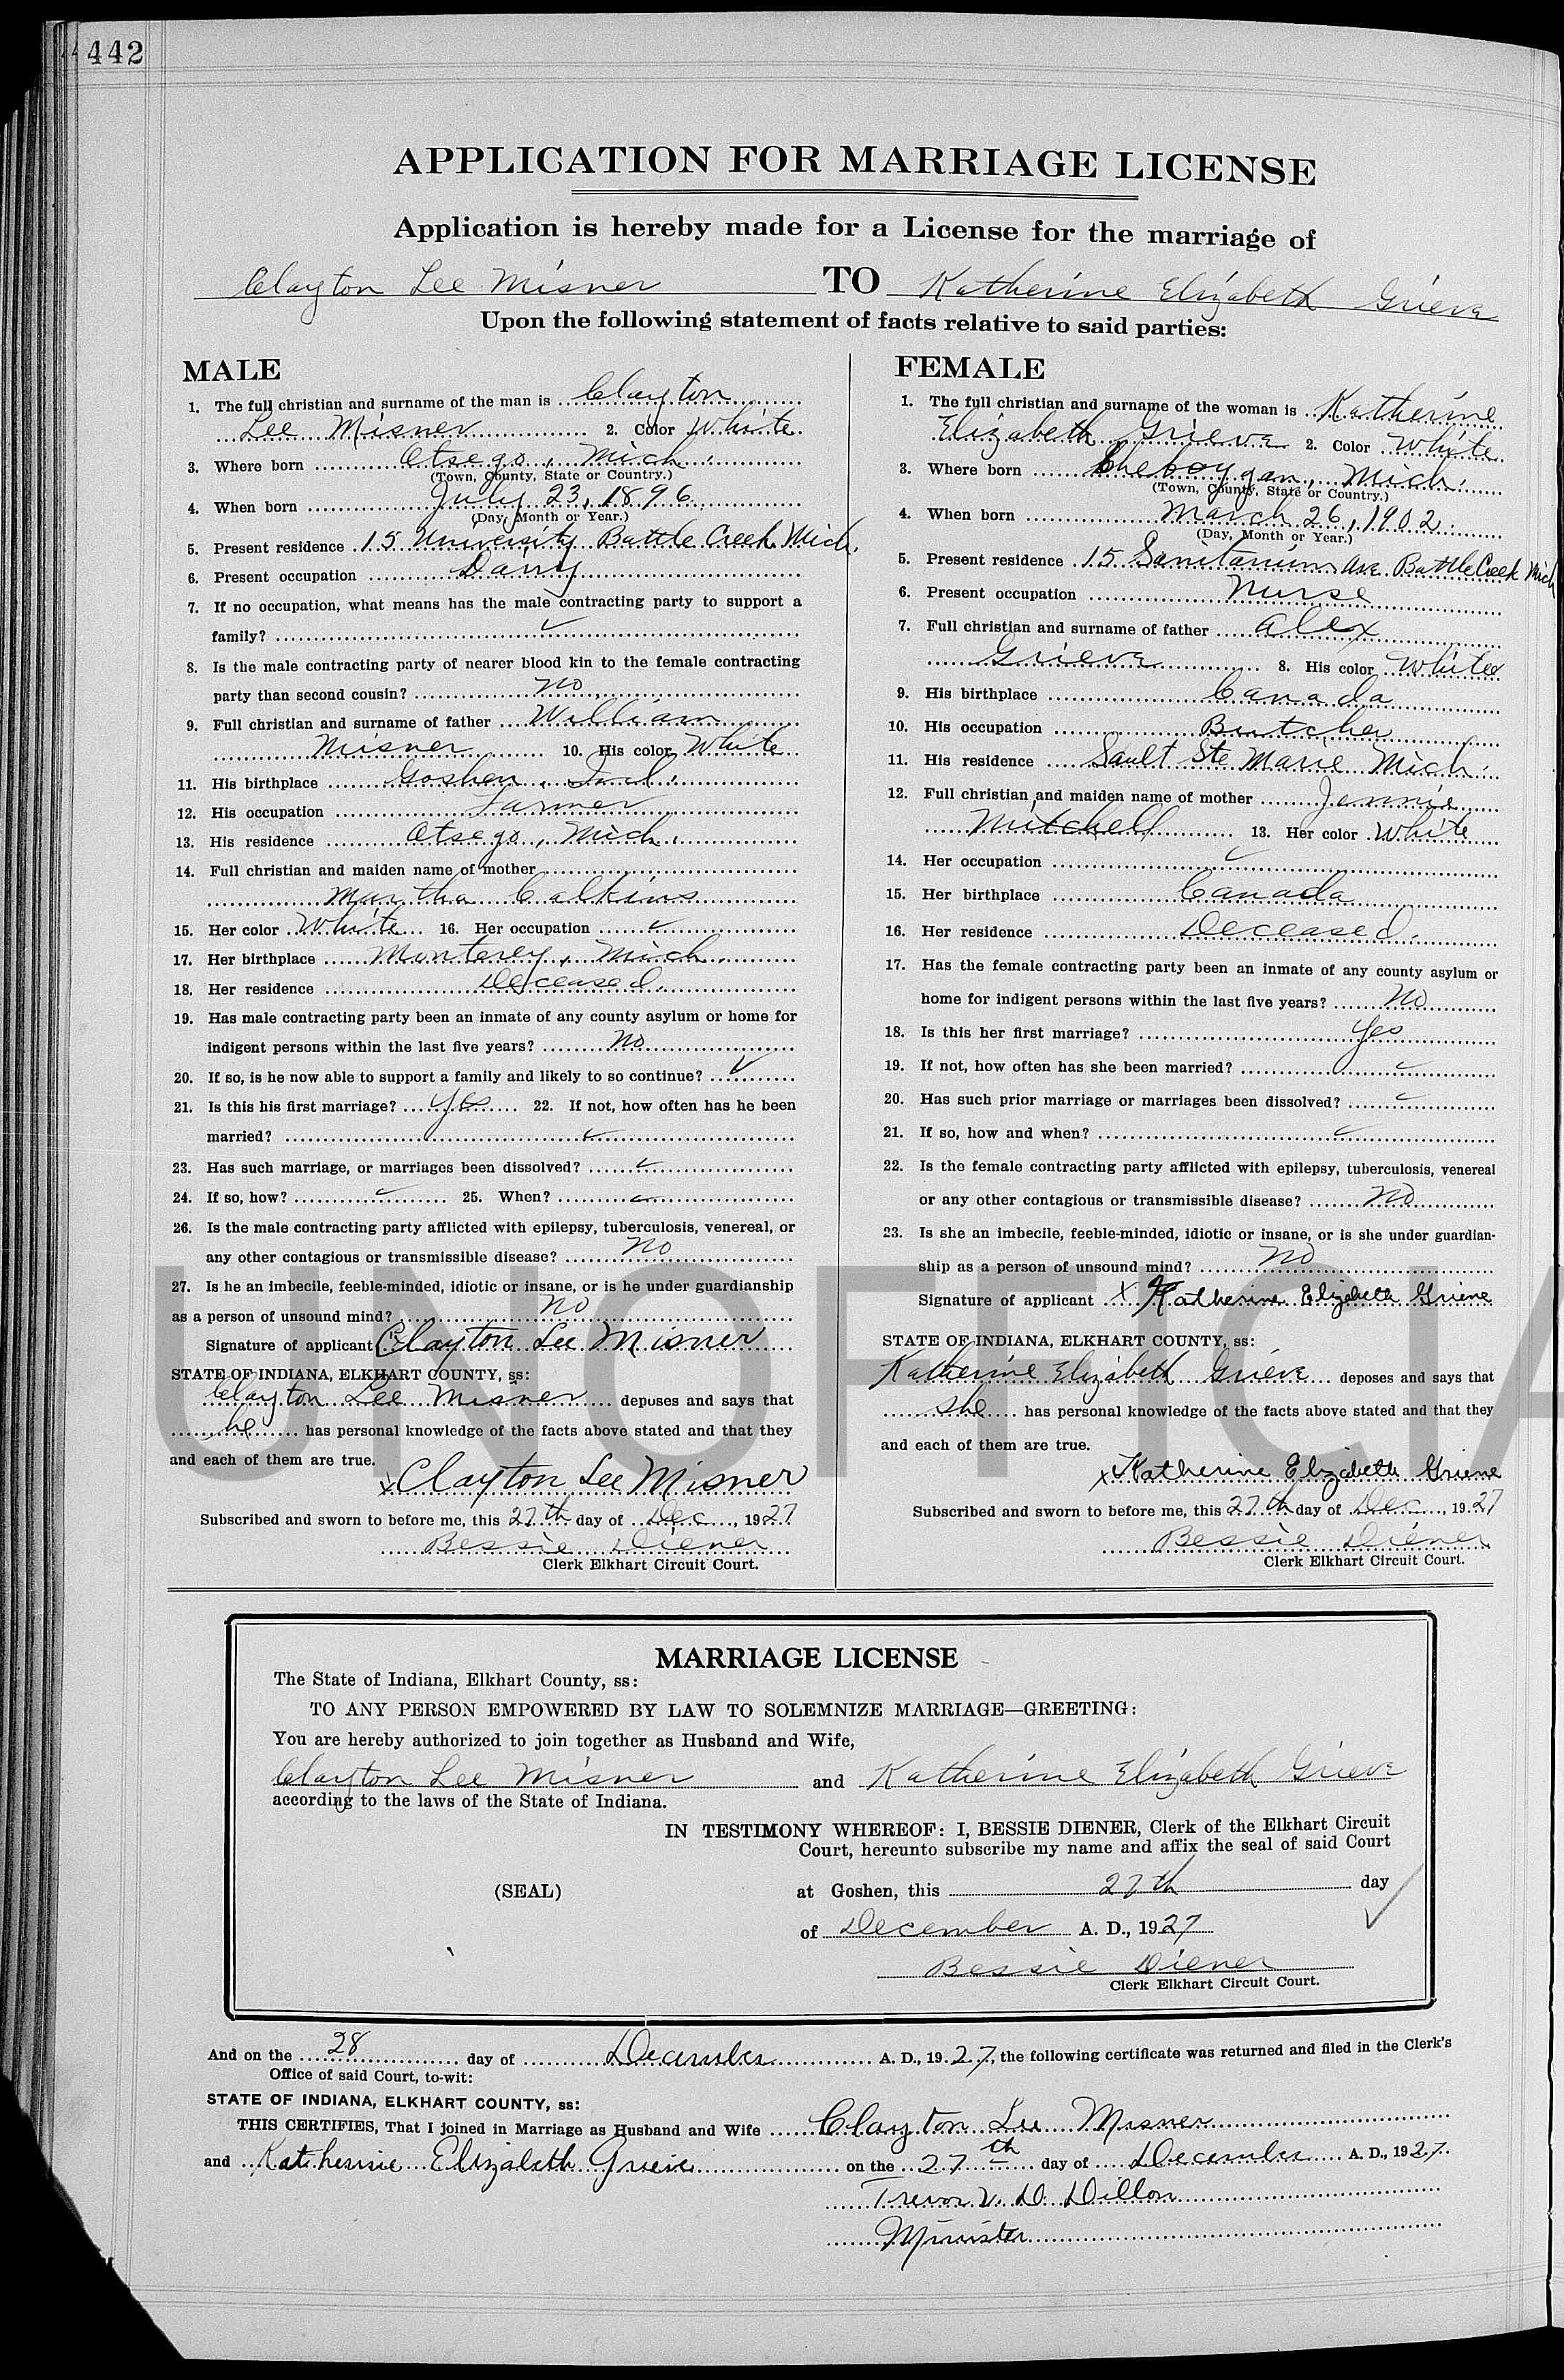 442
APPLICATION FOR MARRIAGE LICENSE
Application is hereby made for a License for the marriage of
Clayton Lee Misner TO Katherine Elizabeth Grieve
Upon the following statement of facts relative to said parties:
MALE
1. The full christian and surname of the man is Clayton
Lee Misner 2. Color White
3. Where born Otsego, Mich.
(Town, County, State or Country.)
4. When born July 23, 1896
(Day, Month or Year.)
5. Present residence 15 University Battle Creek Mich.
6. Present occupation Dairy
7. If no occupation, what means has the male contracting party to support a
family? ✓
8. Is the male contracting party of nearer blood kin to the female contracting
party than second cousin? No
9. Full christian and surname of father William
Misner 10. His color White
11. His birthplace Goshen, Ind.
12. His occupation Farmer
13. His residence Otsego, Mich.
14. Full christian and maiden name of mother
Martha Calkins
15. Her color White 16. Her occupation ✓
17. Her birthplace Monterey, Mich.
18. Her residence Deceased.
19. Has male contracting party been an inmate of any county asylum or home for
indigent persons within the last five years? No
20. If so, is he now able to support a family and likely to so continue? ✓
21. Is this his first marriage? Yes 22. If not, how often has he been
married? ✓
23. Has such marriage, or marriages been dissolved? ✓
24. If so, how? ✓ 25. When? ✓
26. Is the male contracting party afflicted with epilepsy, tuberculosis, venereal, or
any other contagious or transmissible disease? No
27. Is he an imbecile, feeble-minded, idiotic or insane, or is he under guardianship
as a person of unsound mind? No
Signature of applicant Clayton Lee Misner
STATE OF INDIANA, ELKHART COUNTY, ss:
Clayton Lee Misner deposes and says that
he has personal knowledge of the facts above stated and that they
and each of them are true.
x Clayton Lee Misner
Subscribed and sworn to before me, this 27th day of Dec, 1927
Bessie Diener
Clerk Elkhart Circuit Court.
FEMALE
1. The full christian and surname of the woman is Katherine
Elizabeth Grieve 2. Color White
3. Where born Cheboygan, Mich.
(Town, County, State or Country.)
4. When born March 26, 1902.
(Day, Month or Year.)
5. Present residence 15 Sanitarium Ave Battle Creek Mich
6. Present occupation Nurse
7. Full christian and surname of father Alex
Grieve 8. His color White
9. His birthplace Canada
10. His occupation Butcher
11. His residence Sault Ste Marie Mich.
12. Full christian and maiden name of mother Jennie
Mitchell 13. Her color White
14. Her occupation ✓
15. Her birthplace Canada
16. Her residence Deceased.
17. Has the female contracting party been an inmate of any county asylum or
home for indigent persons within the last five years? No
18. Is this her first marriage? Yes
19. If not, how often has she been married? ✓
20. Has such prior marriage or marriages been dissolved? ✓
21. If so, how and when? ✓
22. Is the female contracting party afflicted with epilepsy, tuberculosis, venereal
or any other contagious or transmissible disease? No
23. Is she an imbecile, feeble-minded, idiotic or insane, or is she under guardian-
ship as a person of unsound mind? No
Signature of applicant x Katherine Elizabeth Grieve
STATE OF INDIANA, ELKHART COUNTY, ss:
Katherine Elizabeth Grieve deposes and says that
she has personal knowledge of the facts above stated and that they
and each of them are true.
x Katherine Elizabeth Grieve
Subscribed and sworn to before me, this 27th day of Dec, 1927
Bessie Diener
Clerk Elkhart Circuit Court.
UNOFFICIA
MARRIAGE LICENSE
The State of Indiana, Elkhart County, ss:
TO ANY PERSON EMPOWERED BY LAW TO SOLEMNIZE MARRIAGE—GREETING:
You are hereby authorized to join together as Husband and Wife,
Clayton Lee Misner and Katherine Elizabeth Grieve
according to the laws of the State of Indiana.
IN TESTIMONY WHEREOF: I, BESSIE DIENER, Clerk of the Elkhart Circuit
Court, hereunto subscribe my name and affix the seal of said Court
(SEAL) at Goshen, this 27th day
of December A. D., 1927
Bessie Diener
Clerk Elkhart Circuit Court.
And on the 28 day of December A. D., 1927, the following certificate was returned and filed in the Clerk's
Office of said Court, to-wit:
STATE OF INDIANA, ELKHART COUNTY, ss:
THIS CERTIFIES, That I joined in Marriage as Husband and Wife Clayton Lee Misner
and Katherine Elizabeth Grieve on the 27th day of December A. D., 1927.
Trevor V. D. Dillon
Minister